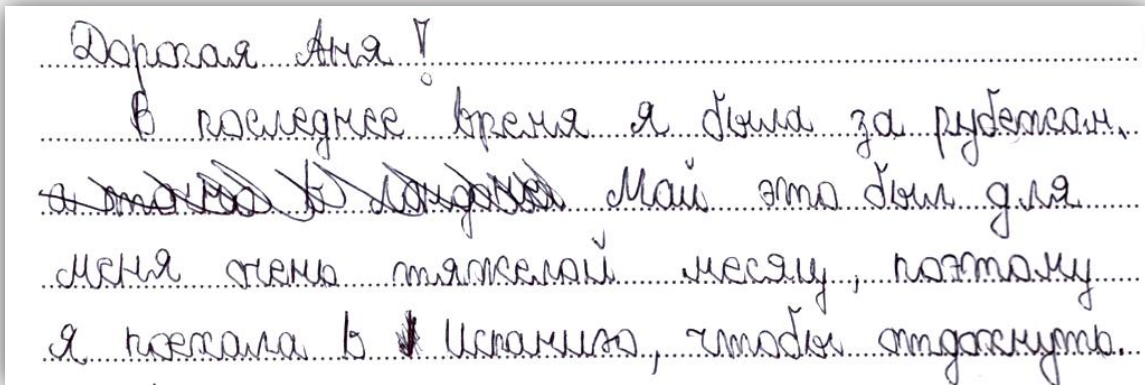 Дорогая Аня!
В последнее время я была за рубежом,
а точно в Лондоне Май это был для
меня очень тяжелой месяц, поэтому
я поехала в Испанию, чтобы отдохнуть.